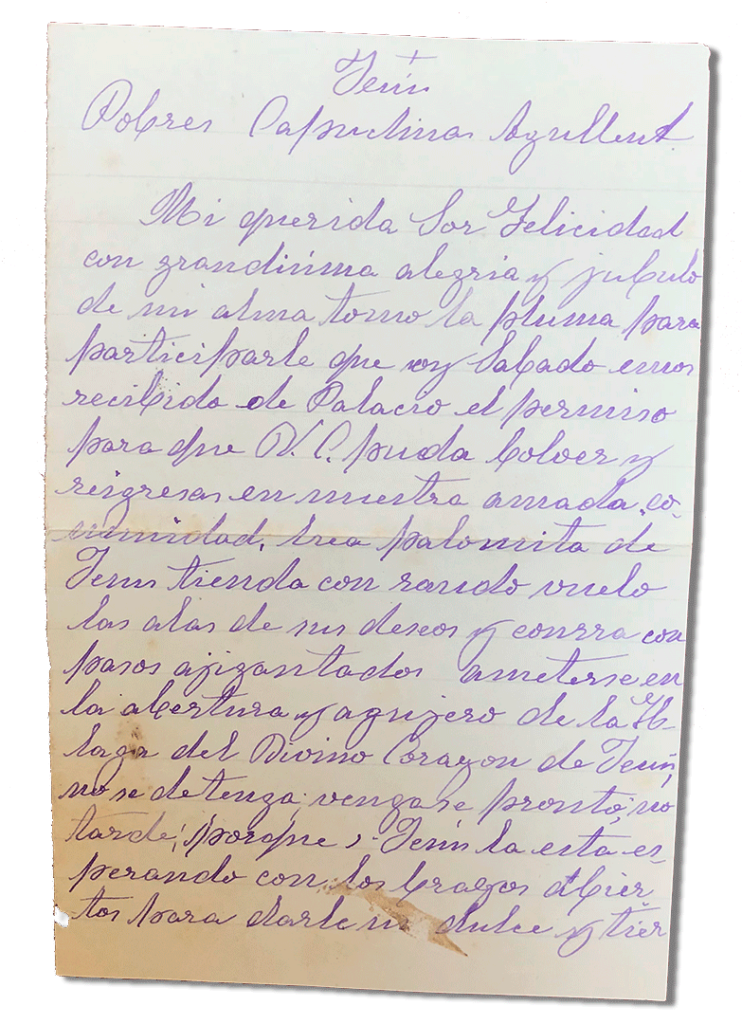 +
Jesús
Pobres Capuchinas Agullent.
Mi querida Sor Felicidad
con grandisima alegria y jubulo
de mi alma tomo la pluma para
participarle que oy Sabado emos
recibido de Palacio el permiso
para que V. C. pueda bolver y
reingresar en nuestra amada co-
munidad, palomita de
Jesus tienda con raudo vuelo
las alas de sus deseos y courra con
pasos ajigantados ameterse en
la abertura y agujero de la
llaga del Divino Corazon de Jesus,
no se detenga; vengase pronto, no
tarde; porque Jesus la esta es-
perando con los brazos abier-
tos para darle su dulce y tier